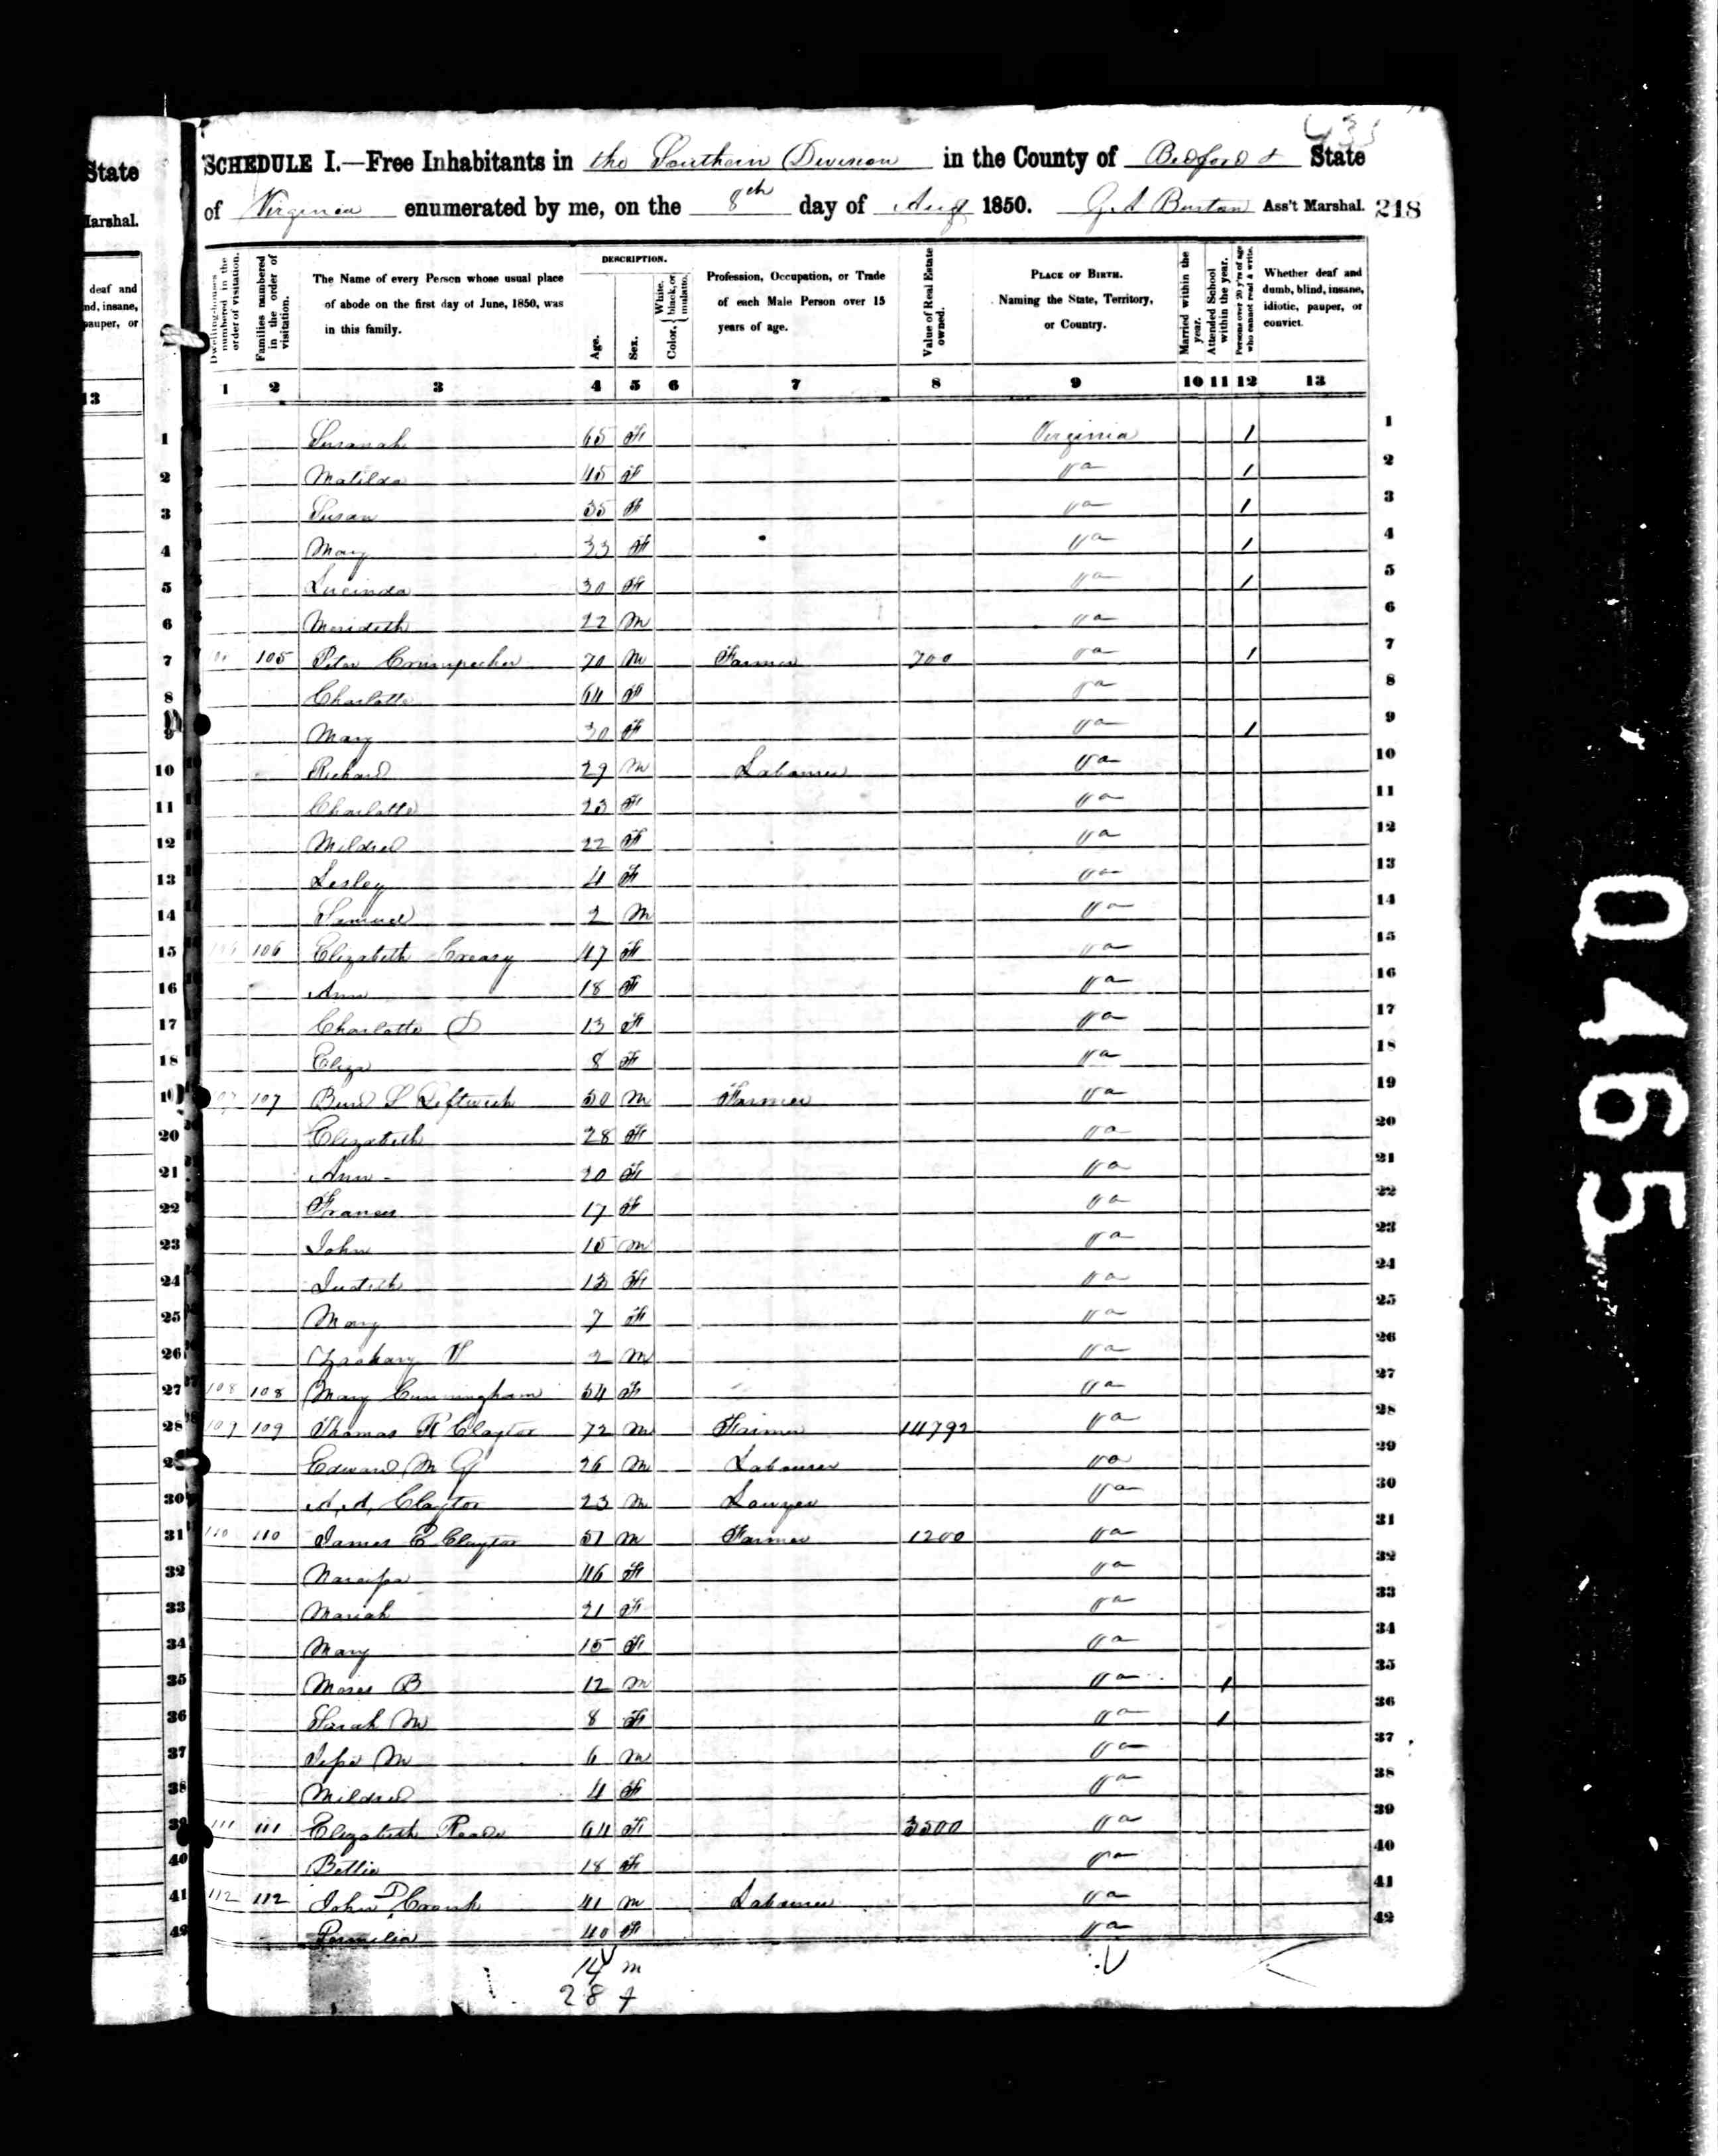 State
Marshal.
deaf and
nd, insane,
pauper, or
13
SCHEDULE I.—Free Inhabitants in the Southern Division in the County of Bedford & State
of Virginia enumerated by me, on the 8th day of Augt 1850. G A Burton Ass't Marshal. 218
Dwelling-houses numbered in the order of visitation.
Families numbered in the order of visitation.
The Name of every Person whose usual place of abode on the first day of June, 1850, was in this family.
DESCRIPTION.
Age.
Sex.
Color, { White, black, or mulatto.
Profession, Occupation, or Trade of each Male Person over 15 years of age.
Value of Real Estate owned.
PLACE OF BIRTH. Naming the State, Territory, or Country.
Married within the year.
Attended School within the year.
Persons over 20 y'rs of age who cannot read & write.
Whether deaf and dumb, blind, insane, idiotic, pauper, or convict.
1 2 3 4 5 6 7 8 9 10 11 12 13
1 Susanah 65 F Virginia 1 1
2 Matilda 45 F Va 1 2
3 Susan 35 F Va 1 3
4 Mary 33 F Va 1 4
5 Lucinda 30 F Va 1 5
6 Merideth 22 M Va 6
7 105 Peter 70 M Farmer 700 Va 1 7
8 Charlotte 64 F Va 8
9 Mary 30 F Va 1 9
10 Richard 29 M Labourer Va 10
11 Charlotte 23 F Va 11
12 Mildred 22 F Va 12
13 Lesley 4 F Va 13
14 Samuel 2 M Va 14
15 106 106 Elizabeth Creasy 47 F Va 15
16 Ann 18 F Va 16
17 Charlotte D 13 F Va 17
18 Eliza 8 F Va 18
19 107 107 Burd L Leftwich 50 M Farmer Va 19
20 Elizabeth 28 F Va 20
21 Ann 20 F Va 21
22 Frances 17 F Va 22
23 John 15 M Va 23
24 Judith 13 F Va 24
25 Mary 7 F Va 25
26 Zachary T 2 M Va 26
27 108 108 Mary Cunningham 54 F Va 27
28 109 109 Thomas R Claytor 72 M Farmer 14792 Va 28
29 Edward M G 26 M Labourer Va 29
30 A, A, Claytor 23 M Lawyer Va 30
31 110 110 James C Claytor 51 M Farmer 1200 Va 31
32 Narcissa 46 F Va 32
33 Mariah 21 F Va 33
34 Mary 15 F Va 34
35 Moses B 12 M Va 1 35
36 Sarah M 8 F Va 1 36
37 Jesse M 6 M Va 37
38 Mildred 4 F Va 38
39 111 111 Elizabeth Reade 64 F 3500 Va 39
40 Bettie 18 F Va 40
41 112 112 John D Crank 41 M Labourer Va 41
42 Permelia 40 F Va 42
14 m
28 f
0465